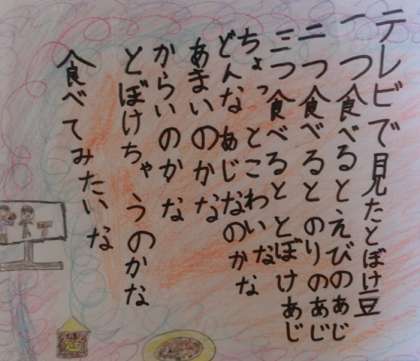 テレビで見たとぼけ豆
一つ食べるとえびのあじ
二つ食べるとのりのあじ
三つ食べるととぼけあじ
ちょっとこわいな
どんなあじなのかな
あまいのかな
からいのかな
とぼけちゃうのかな
食べてみたいな